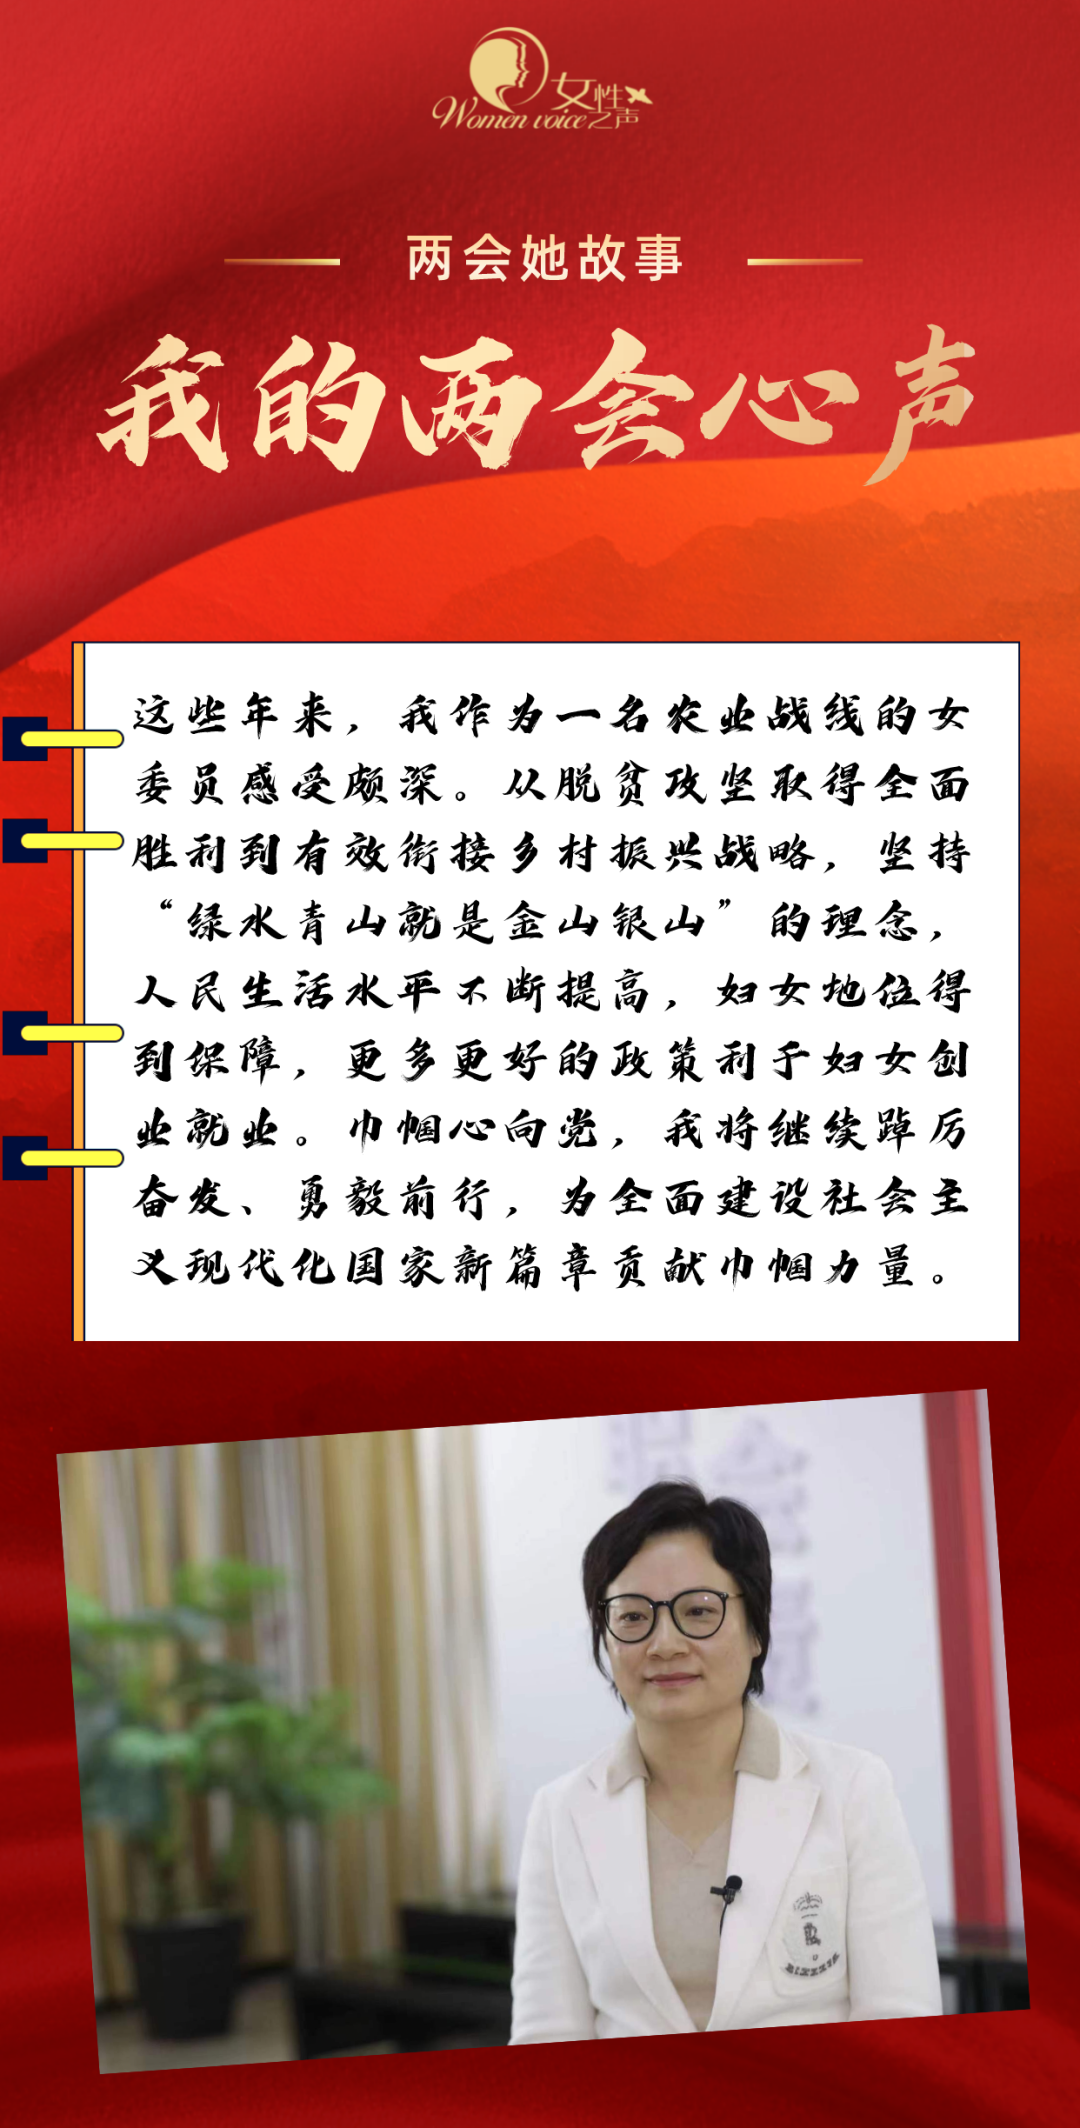 女性之声
Women voice
两会她故事
我的两会心声
这些年来，我作为一名农业战线的女
委员感受颇深。从脱贫攻坚取得全面
胜利到有效衔接乡村振兴战略，坚持
“绿水青山就是金山银山”的理念，
人民生活水平不断提高，妇女地位得
到保障，更多更好的政策利于妇女创
业就业。巾帼心向党，我将继续踔厉
奋发、勇毅前行，为全面建设社会主
义现代化国家新篇章贡献巾帼力量。